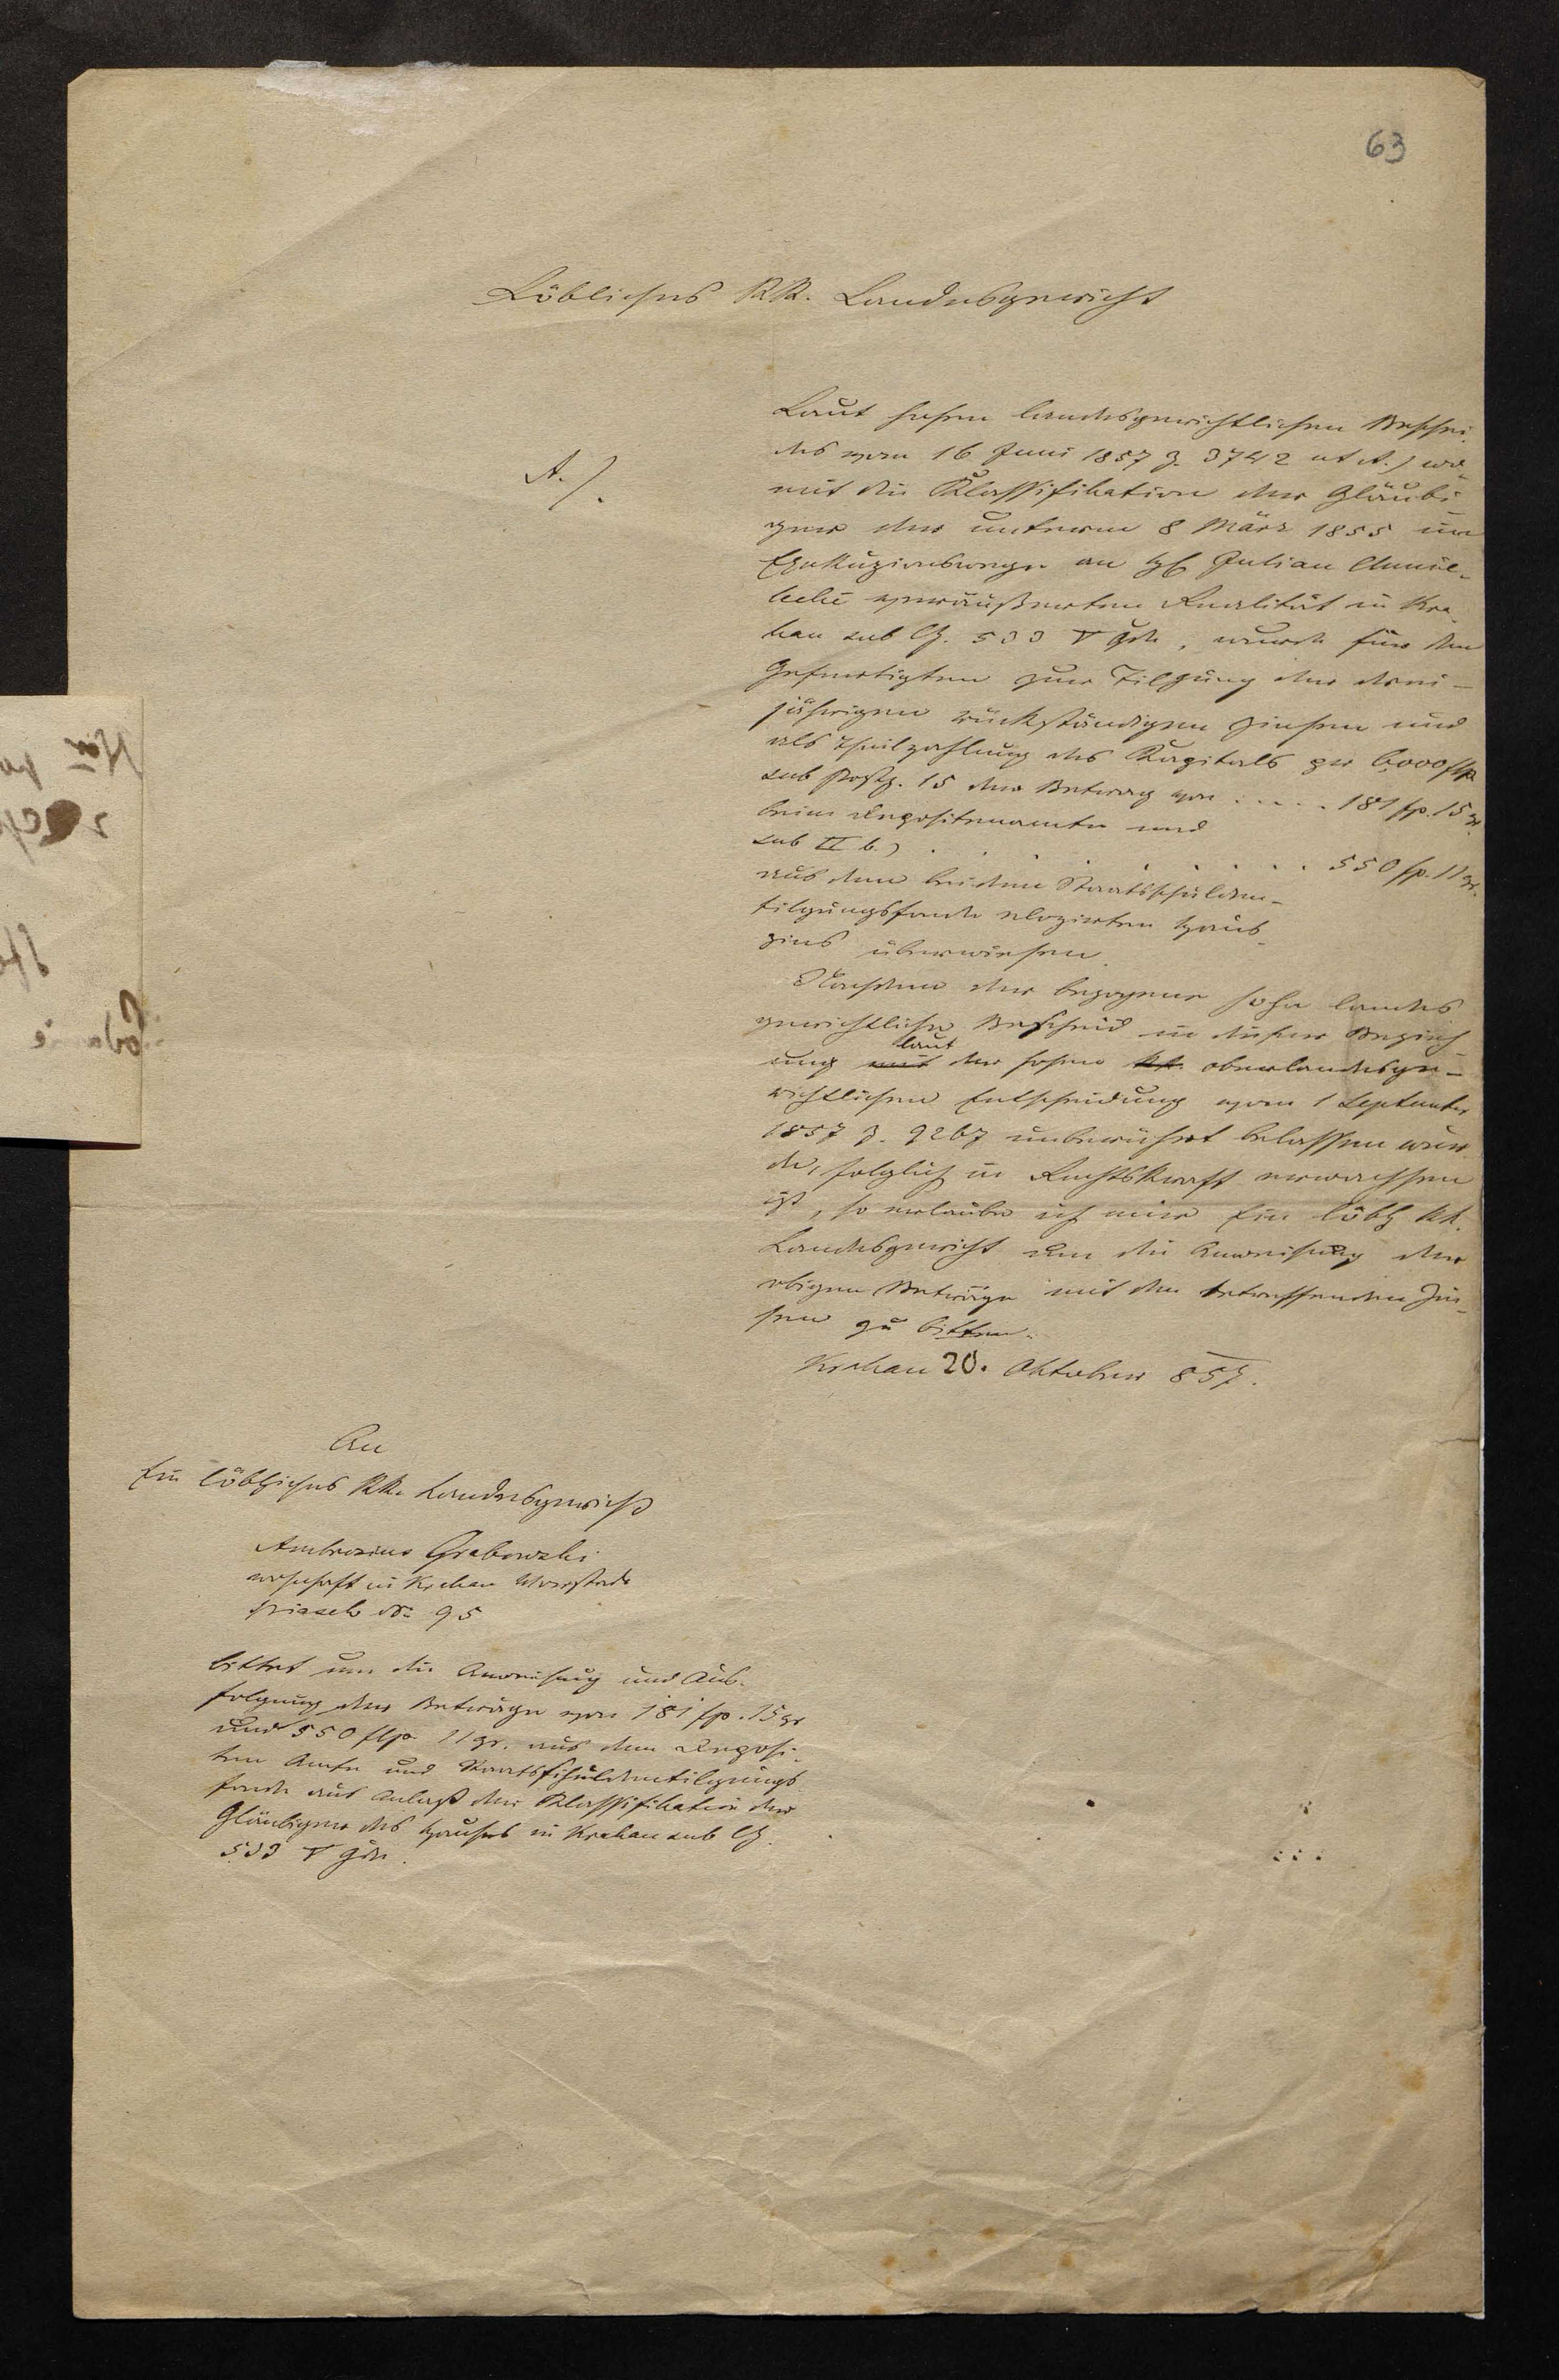 63
Löbliches KK. Landesgericht
A./.
Laut hohen landesgerichtlichen Beschei-
des vom 16 Juni 1857 Z. 3742 ut A.) wo-
mit die Klassifikation der Gläubi-
ger der unterm 8 März 1855 im
Exekuzionswege an H. Julian
veräußerten Realität in Kra-
kau sub CZ. 533 V Gde, wurde für den
Gefertigten zur Tilgung der drei-
jährigen rückständigen Zinsen und
als Theilzahlung des Kapitals per 6,000 flp
sub Postz. 15 der Betrag von . . . . . 181 fp. 15 gr.
beim Depositenamte und
sub II b.) . . . . . . . . 550 fp. 11 gr.
aus dem bei dem Staatsschulden-
tilgungsfonde elozirten Haus-
zins überwiesen.
Nachdem der bezogene hohe landes
gerichtliche Bescheid in dieser Bezieh-
ung mit laut der hohen kk. oberlandesge-
richtlichen Entscheidung vom 1 September
1857 Z. 9267 unberührt belassen wur-
de, folglich in Rechtskraft erwachsen
ist, so erlaube ich mir Ein löbl kk.
Landesgericht um die Anweisung der
obigen Beträge mit den betreffenden Zin-
sen zu bitten.
Krakau 20. Oktober 857.
An
Ein löbliches KK. Landesgericht
Ambrosius Grabowski
wohnhaft in Krakau Vorstadt
Piasek No 95
bittet um die Anweisung und Aus-
folgung der Beträge von 181 fp. 15 gr
und 550 flp. 11 gr. aus dem Deposi-
ten Amte und Staatsschuldentilgungs-
fonde aus Anlaß der Klassifikation der
Gläubiger des Hauses in Krakau sub CZ.
533 V Gde.